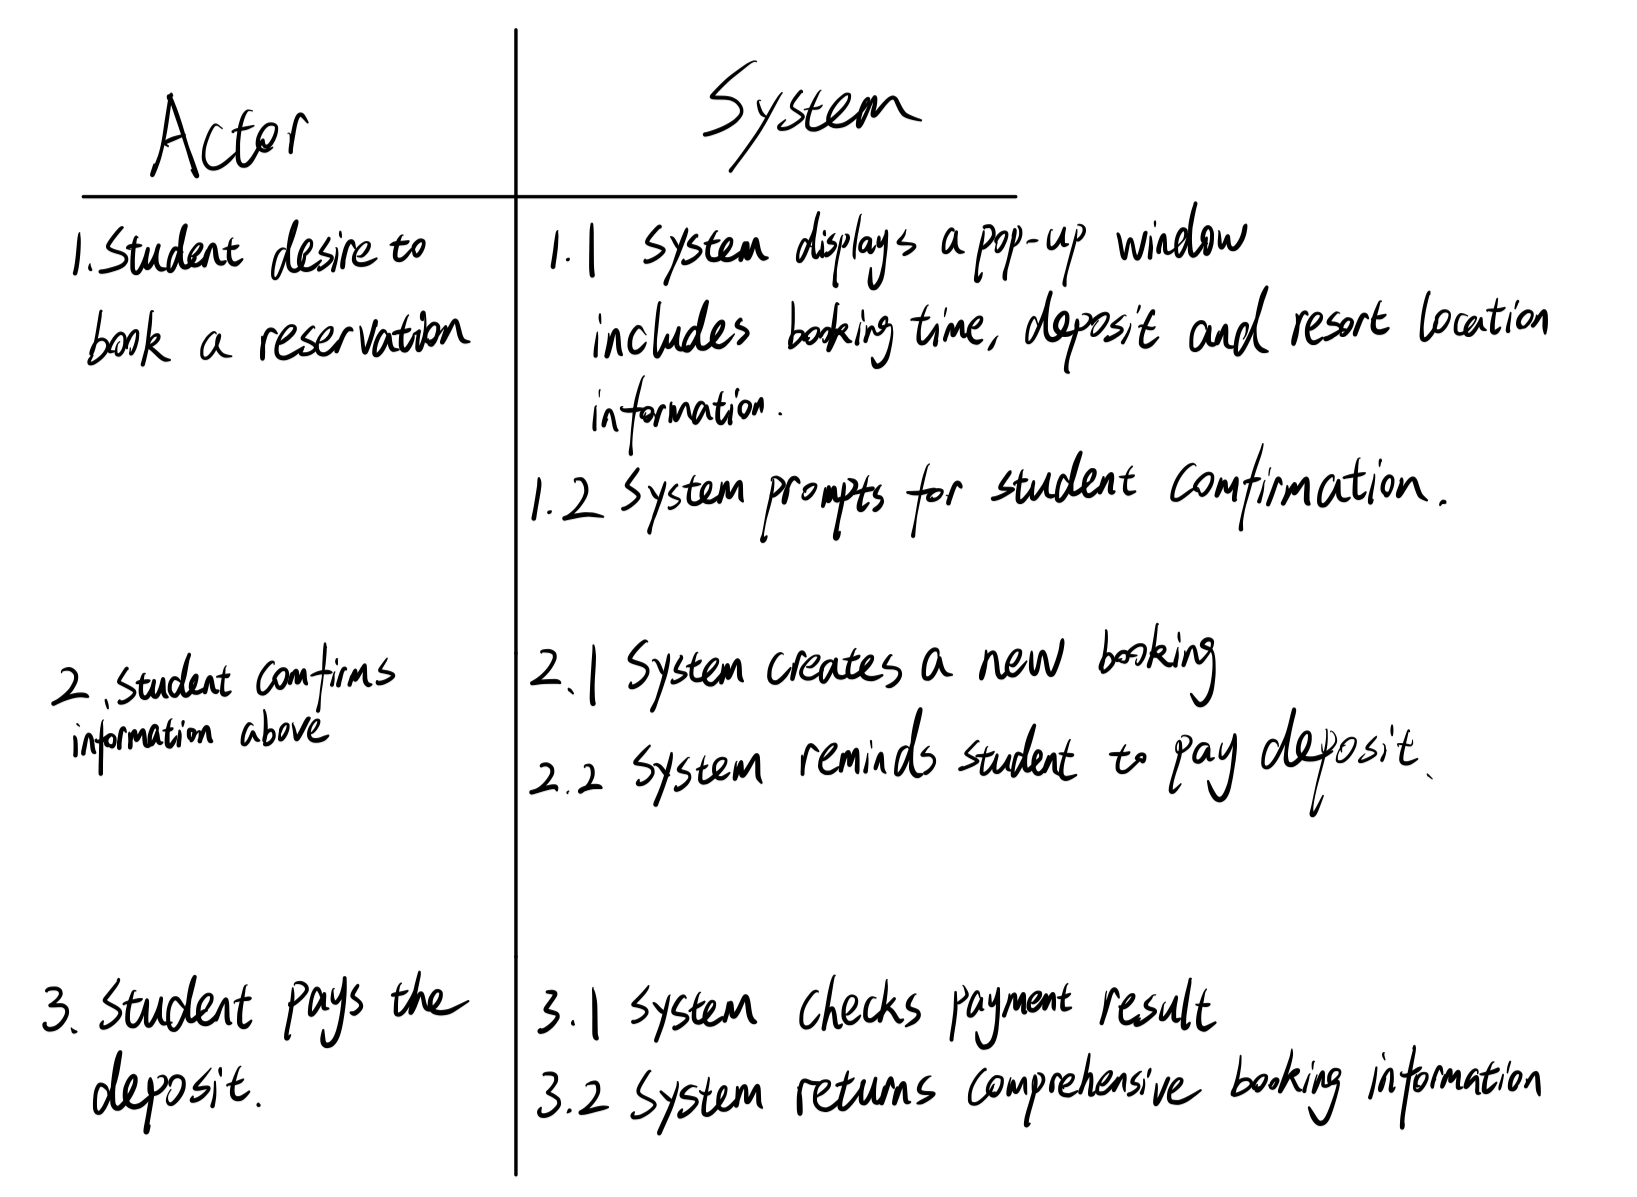 Actor
System
1. Student desire to
book a reservation
1.1 System displays a pop-up window
includes booking time, deposit and resort location
information.
1.2 System prompts for student comfirmation.
2. Student comfirms
information above
2.1 System creates a new booking
2.2 System reminds student to pay deposit.
3. Student pays the
deposit.
3.1 System checks payment result
3.2 System returns comprehensive booking information